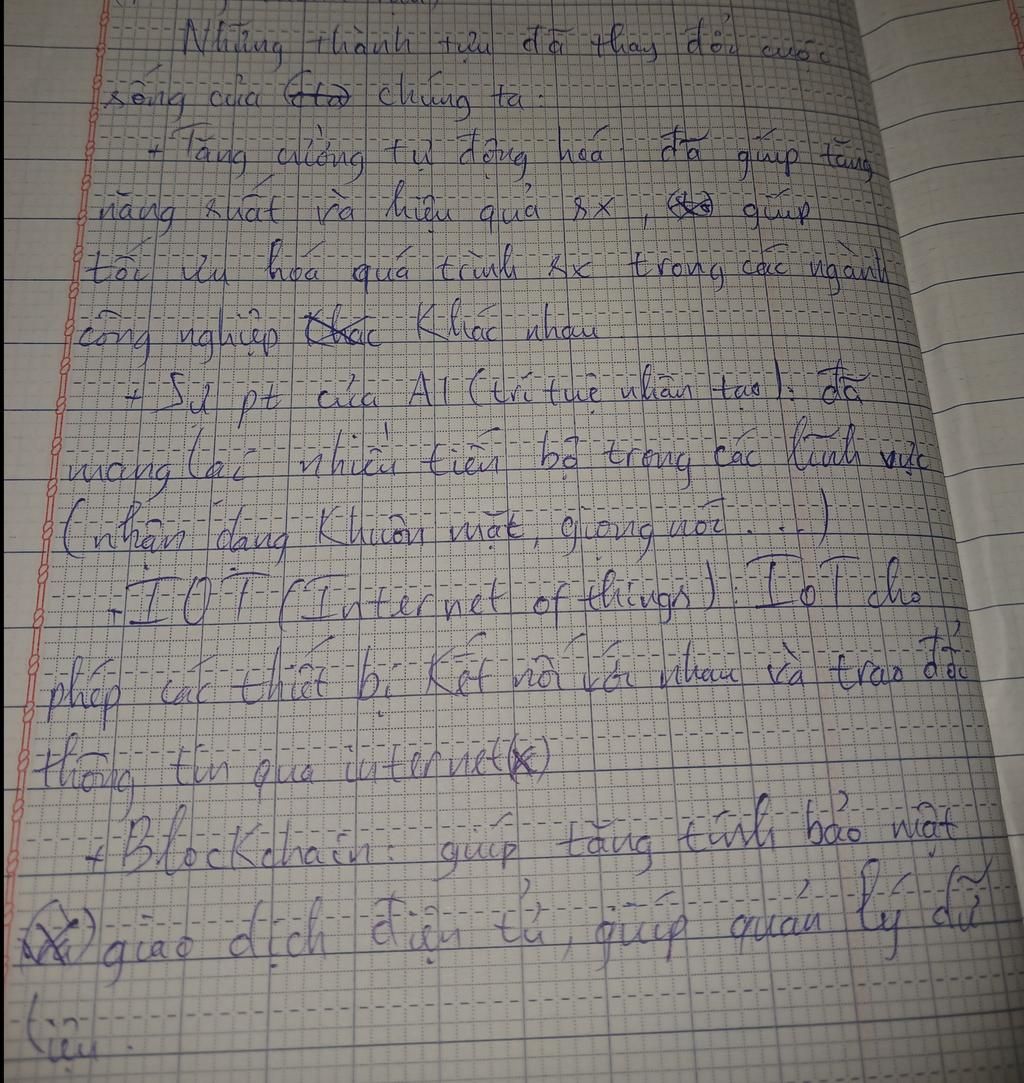 Những thành tựu đã thay đổi cuộc
sống của chúng ta.
+ Tăng cường tự động hoá đã giúp tăng
năng suất và hiệu quả sx, giúp
tối ưu hoá quá trình sx trong các ngành
công nghiệp Khác nhau
+ Sự pt của AI (trí tuệ nhân tạo): đã
mang lại nhiều tiến bộ trong các lĩnh vực
(nhận dạng Khuôn mặt, giọng nói...)
+ IOT (Internet of things): IoT cho
phép các thiết bị Kết nối với nhau và trao đổi
thông tin qua internet
+ BlocKchain: giúp tăng tính bảo mật
giao dịch điện tử, giúp quản lý dữ
liệu.